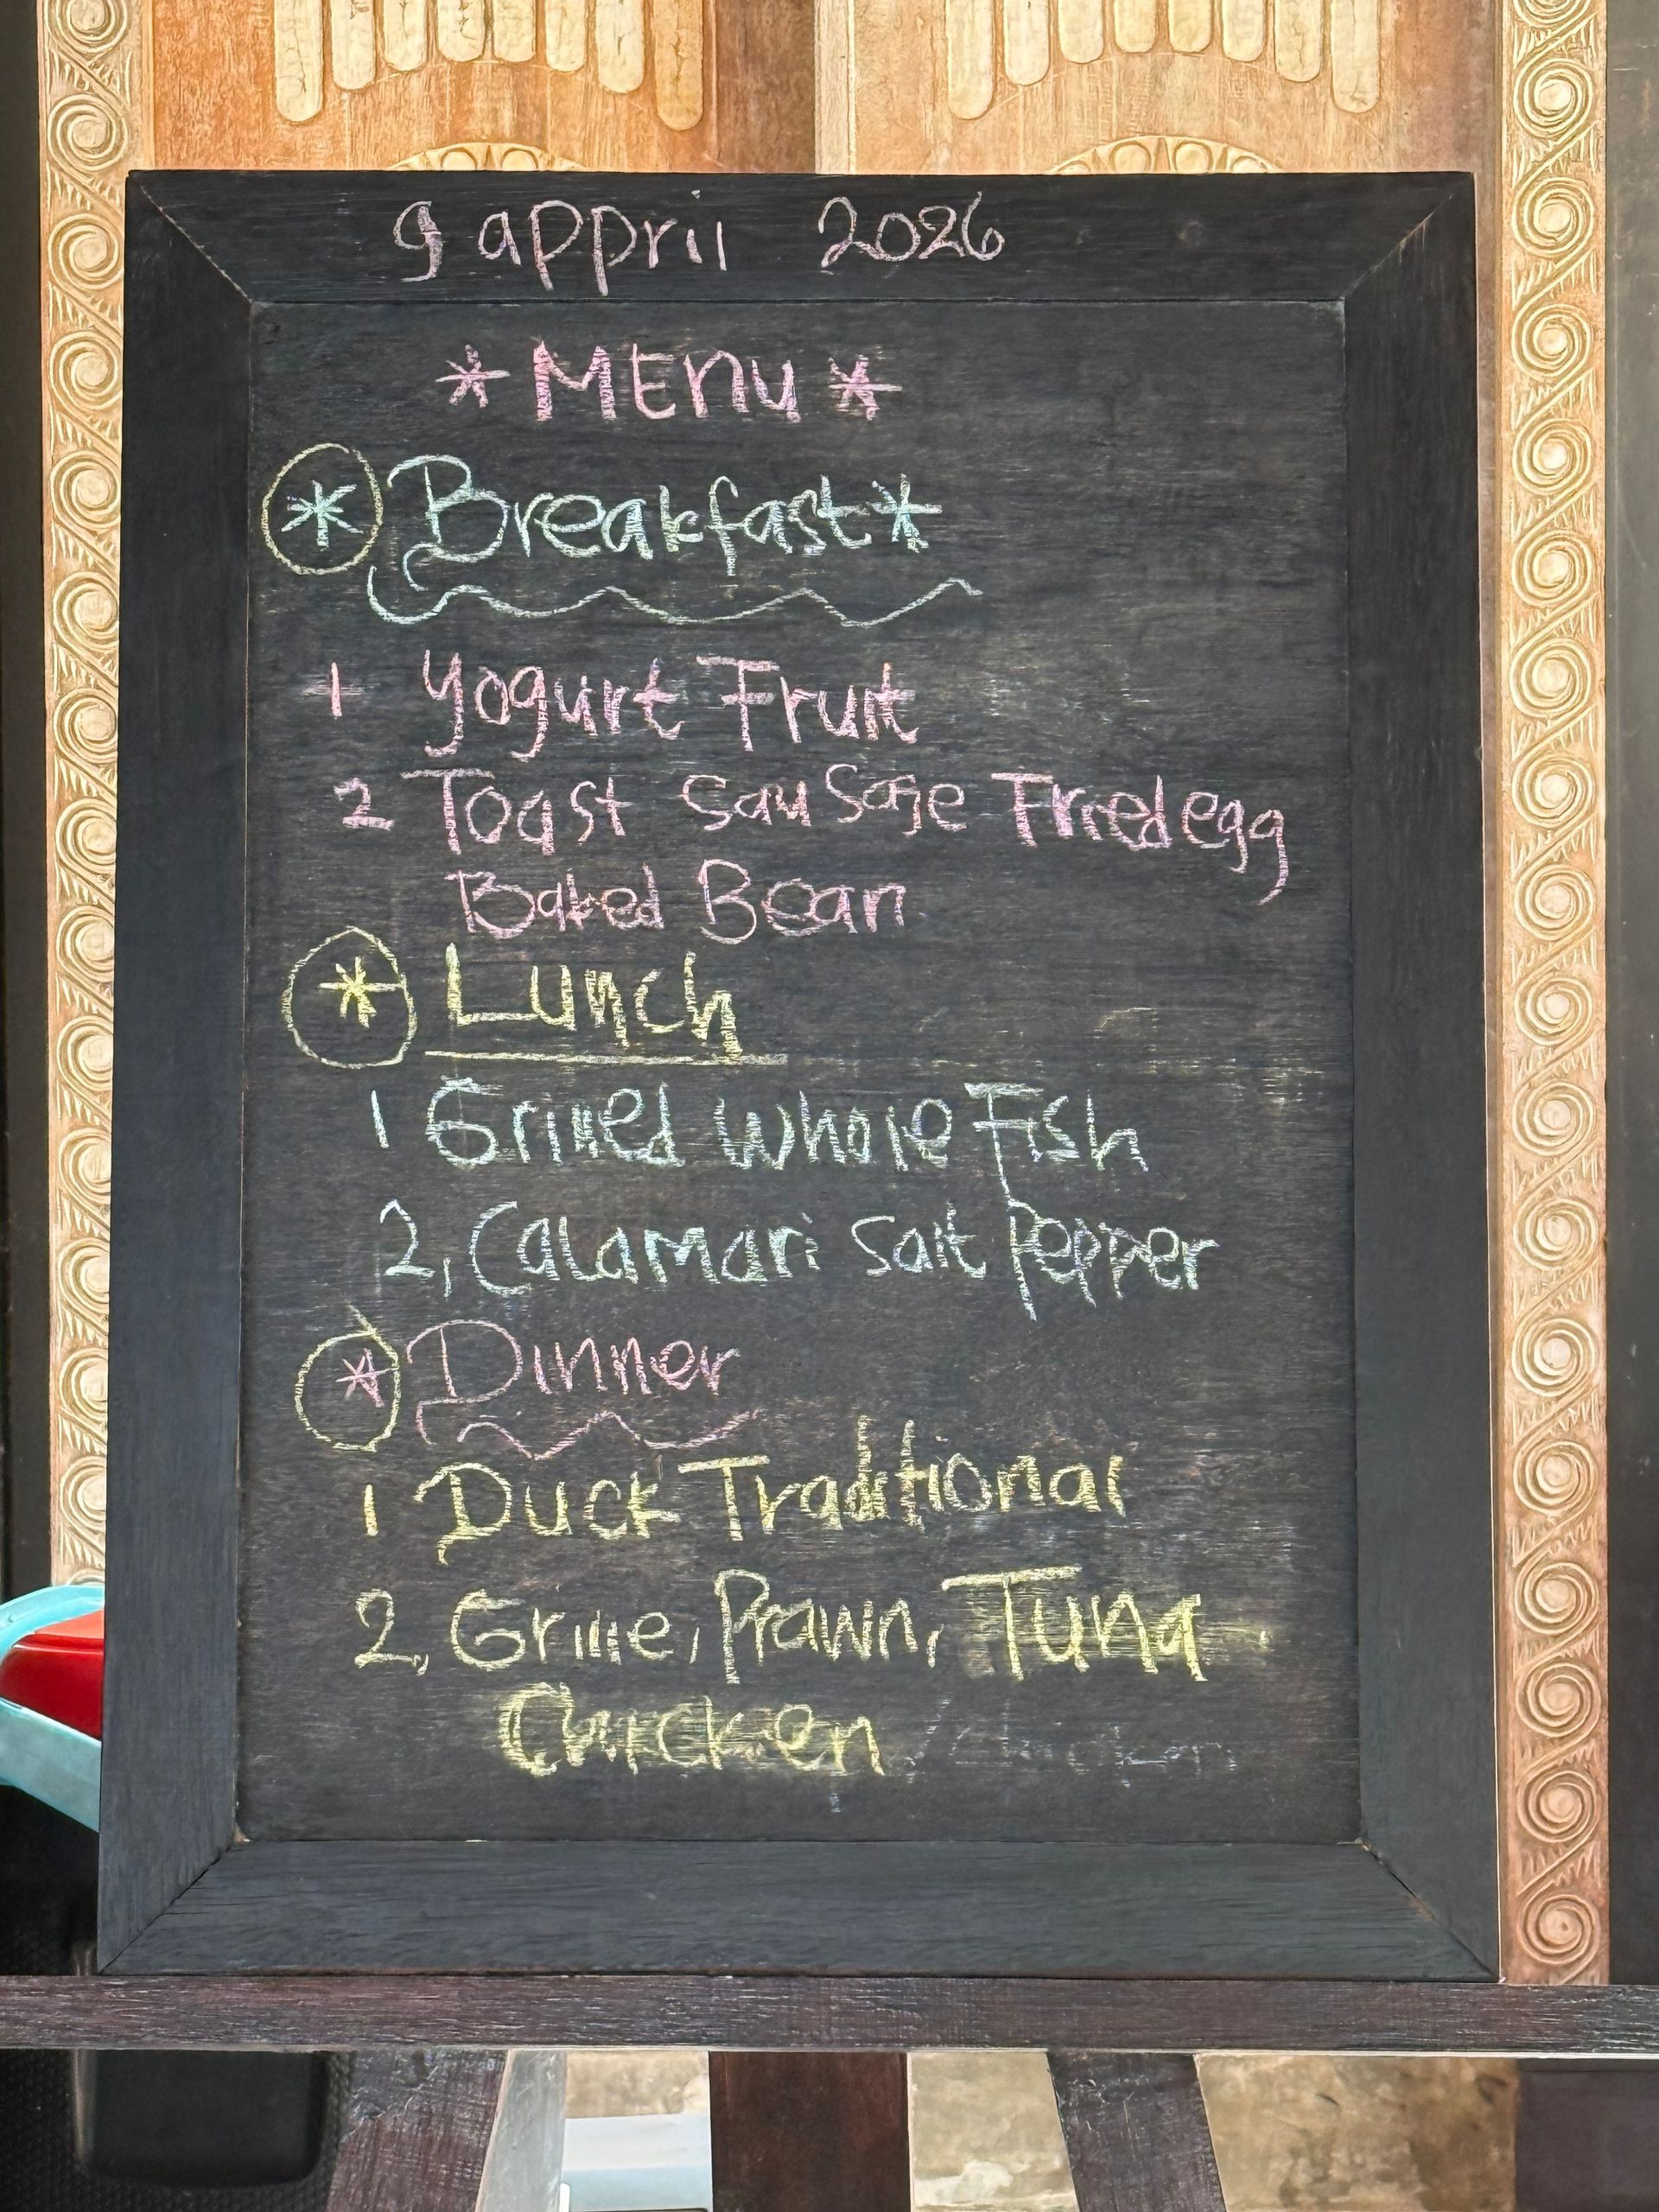 9 appril 2026
* MEnu *
* Breakfast *
1 Yogurt Fruit
2 Toast Sausage Fried egg
Baked Bean
* Lunch
1 Grilled Whole Fish
2, Calamari Salt Pepper
* Dinner
1 Duck Traditional
2, Grille, Prawn, Tuna
Chicken / chicken